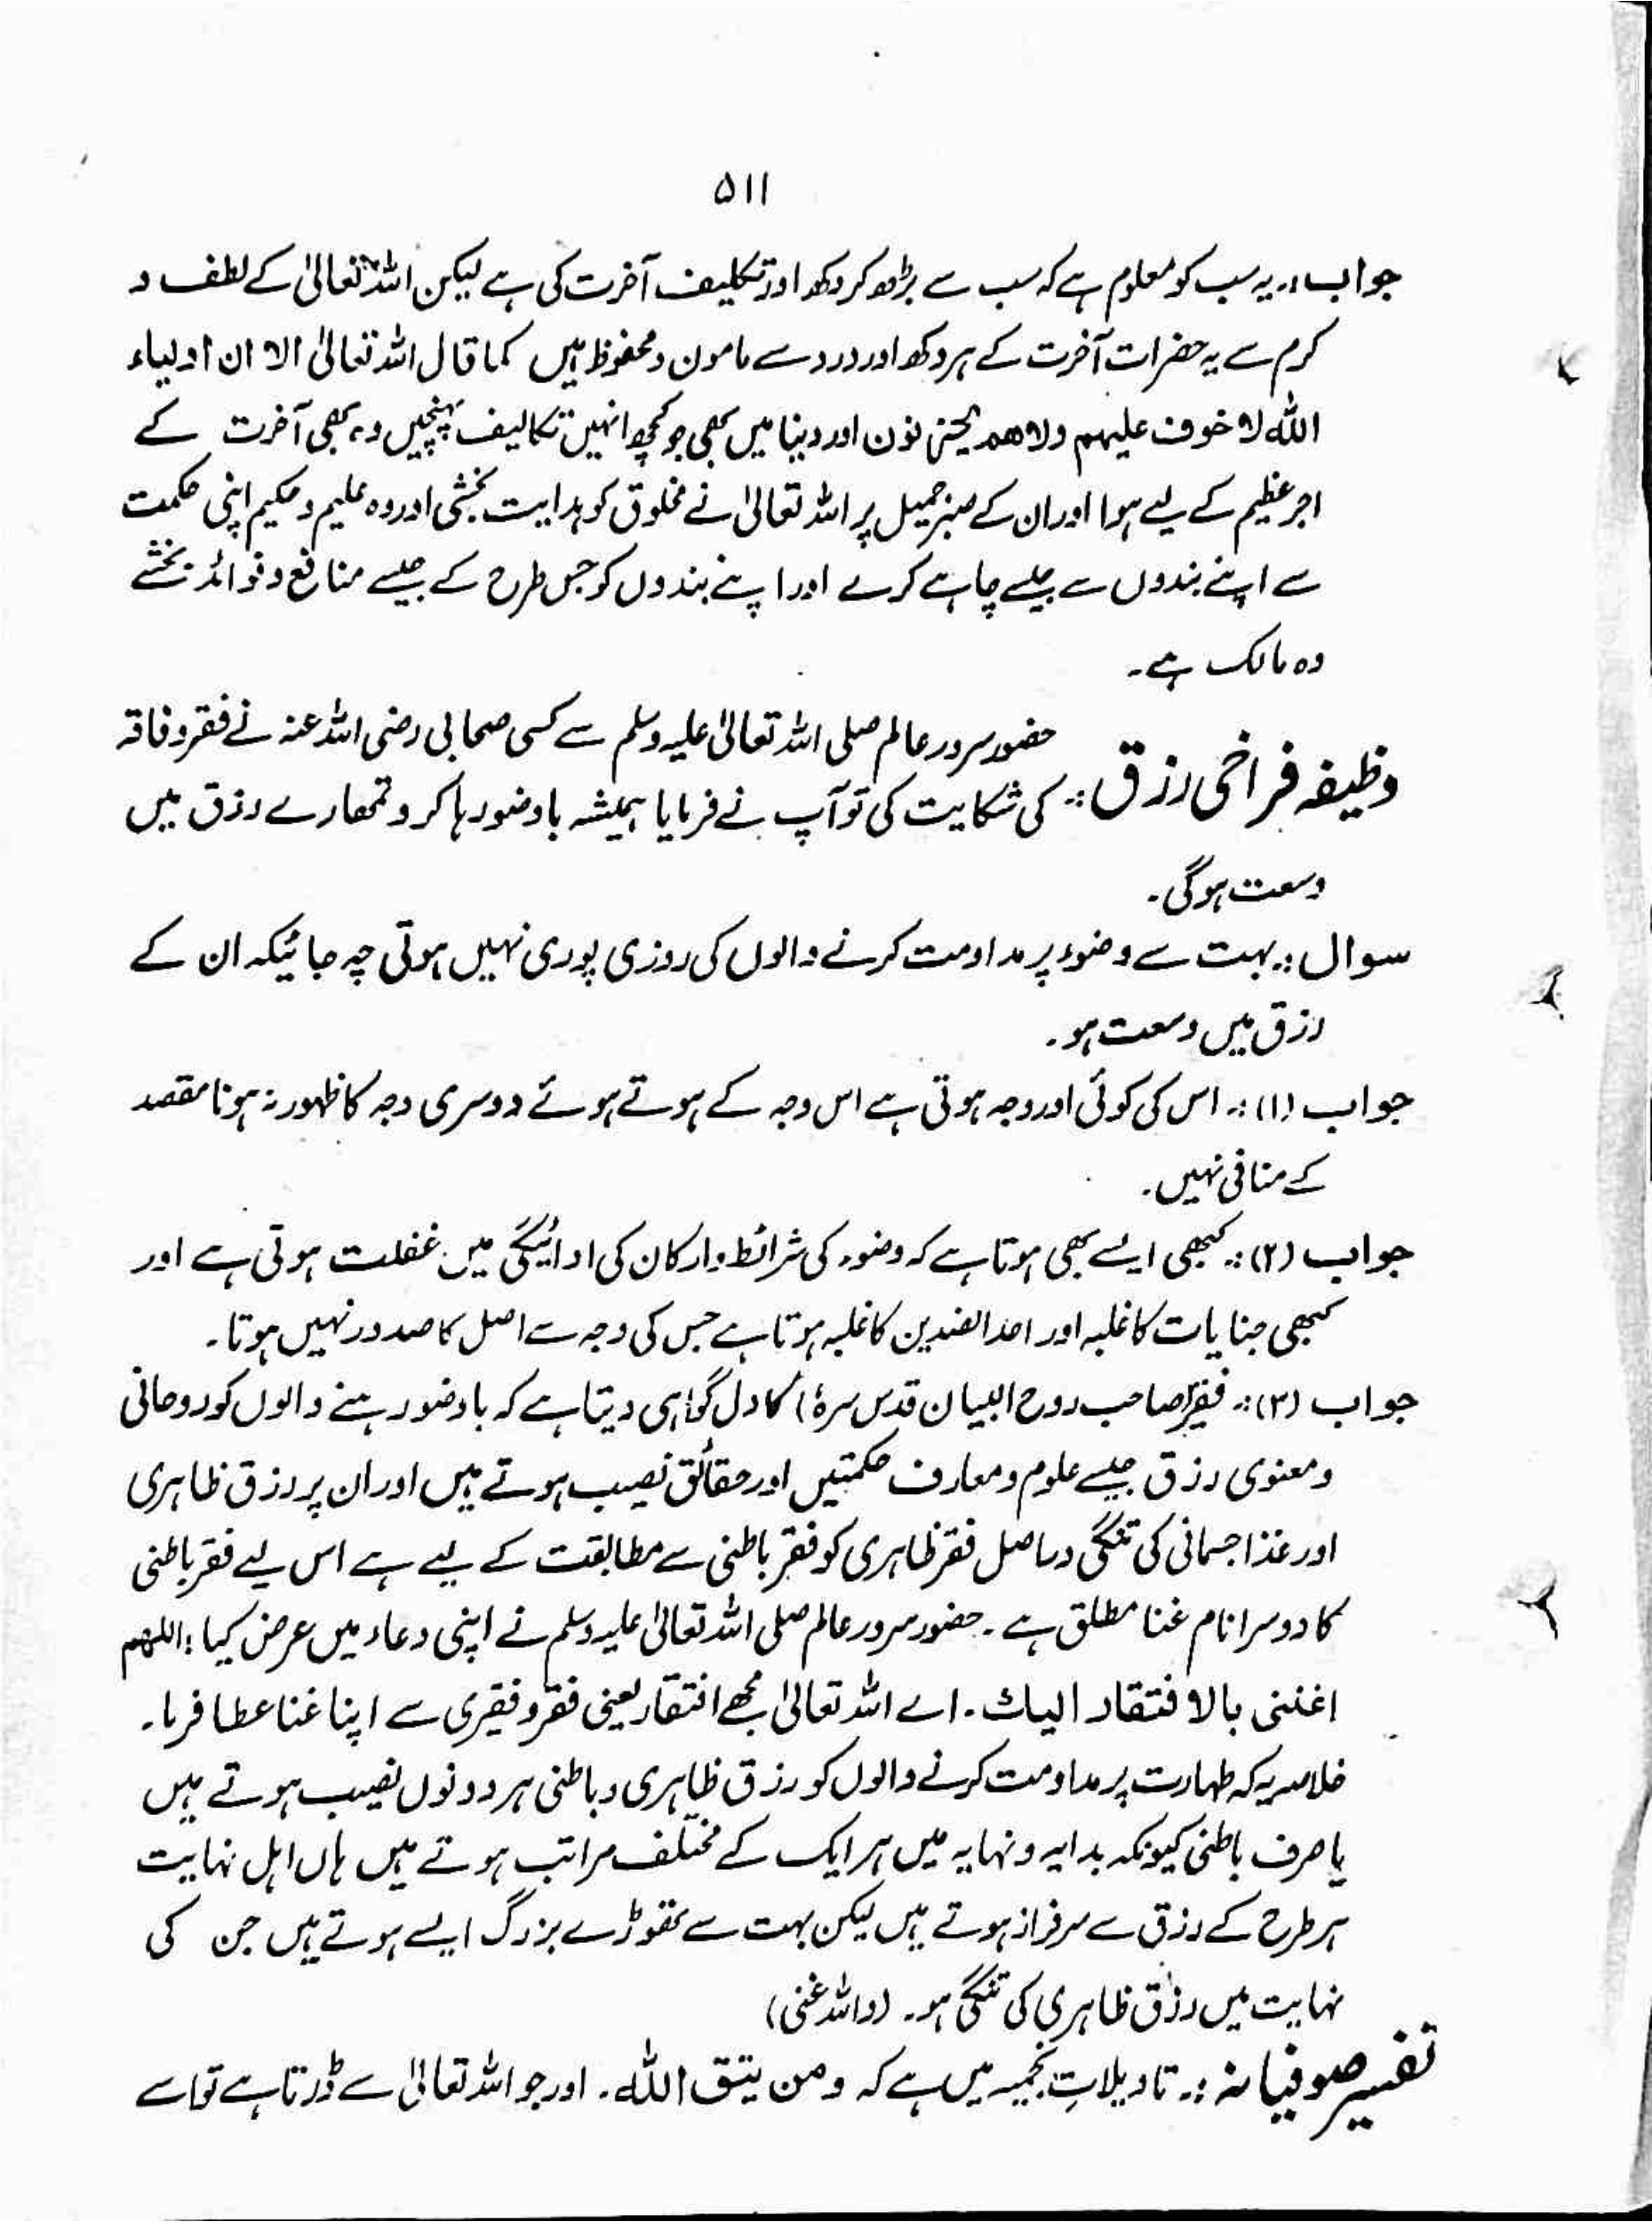 ۵۱۱
جواب :۔ یہ سب کو معلوم ہے کہ سب سے بڑھ کر دکھ اور تکلیف آخرت کی ہے لیکن اللہ تعالیٰ کے لطف و
کرم سے یہ حضرات آخرت کے ہر دکھ اور درد سے مامون و محفوظ ہیں کما قال اللہ تعالیٰ الا ان اولیاء
اللہ لا خوف علیہم ولا ھم یحزنون اور دنیا میں بھی جو کچھ انہیں تکالیف پہنچیں وہ بھی آخرت کے
اجر عظیم کے لیے ہوا اور ان کے صبر جمیل پر اللہ تعالیٰ نے مخلوق کو ہدایت بخشی اور وہ علیم و حکیم اپنی حکمت
سے اپنے بندوں سے جیسے چاہے کرے اور اپنے بندوں کو جس طرح کے جیسے منافع و فوائد بخشے
وہ مالک ہے۔
وظیفہ فراخی رزق :۔ حضور سرور عالم صلی اللہ تعالیٰ علیہ وسلم سے کسی صحابی رضی اللہ عنہ نے فقر و فاقہ
کی شکایت کی تو آپ نے فرمایا ہمیشہ باوضو رہا کرو تمھارے رزق میں
وسعت ہوگی۔
سوال :۔ بہت سے وضوء پر مداومت کرنے والوں کی روزی پوری نہیں ہوتی چہ جائیکہ ان کے
رزق میں وسعت ہو۔
جواب (۱) :۔ اس کی کوئی اور وجہ ہوتی ہے اس وجہ کے ہوتے ہوئے دوسری وجہ کا ظہور نہ ہونا مقصد
کے منافی نہیں۔
جواب (۲) :۔ کبھی ایسے بھی ہوتا ہے کہ وضوء کی شرائط و ارکان کی ادائیگی میں غفلت ہوتی ہے اور
کبھی جنایات کا غلبہ اور احد الضدین کا غلبہ ہوتا ہے جس کی وجہ سے اصل کا صدور نہیں ہوتا۔
جواب (۳) :۔ فقیر (صاحب روح البیان قدس سرہٗ) کا دل گواہی دیتا ہے کہ باوضو رہنے والوں کو روحانی
و معنوی رزق جیسے علوم و معارف حکمتیں اور حقائق نصیب ہوتے ہیں اور ان پر رزق ظاہری
اور غذا جسمانی کی تنگی دراصل فقر ظاہری کو فقر باطنی سے مطابقت کے لیے ہے اس لیے فقر باطنی
کا دوسرا نام غنا مطلق ہے۔ حضور سرور عالم صلی اللہ تعالیٰ علیہ وسلم نے اپنی دعاء میں عرض کیا : اللھم
اغننی بالافتقار الیك۔ اے اللہ تعالیٰ مجھے افتقار یعنی فقر و فقیری سے اپنا غنا عطا فرما۔
خلاصہ یہ کہ طہارت پر مداومت کرنے والوں کو رزق ظاہری و باطنی ہر دونوں نصیب ہوتے ہیں
یا صرف باطنی کیونکہ بدایہ و نہایہ میں ہر ایک کے مختلف مراتب ہوتے ہیں ہاں اہل نہایت
ہر طرح کے رزق سے سرفراز ہوتے ہیں لیکن بہت سے تھوڑے بزرگ ایسے ہوتے ہیں جن کی
نہایت میں رزق ظاہری کی تنگی ہو۔ (واللہ غنی)
تفسیر صوفیانہ :۔ تاویلاتِ نجمیہ میں ہے کہ ومن یتق اللہ۔ اور جو اللہ تعالیٰ سے ڈرتا ہے تو اسے